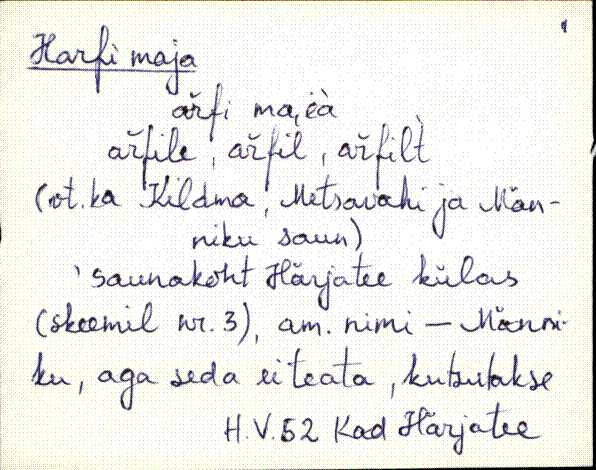 Harfi maja
ař̌fi ma͕i̯à
ařfile, ařfil, ařfil̀t
(vt. ka Kildma, Metsavahi ja Män-
niku saun)
'saunakoht Härjatee külas
(skeemil nr. 3), am. nimi — Männi-
ku, aga seda ei teata, kutsutakse
H.V. 52 Kad Härjatee